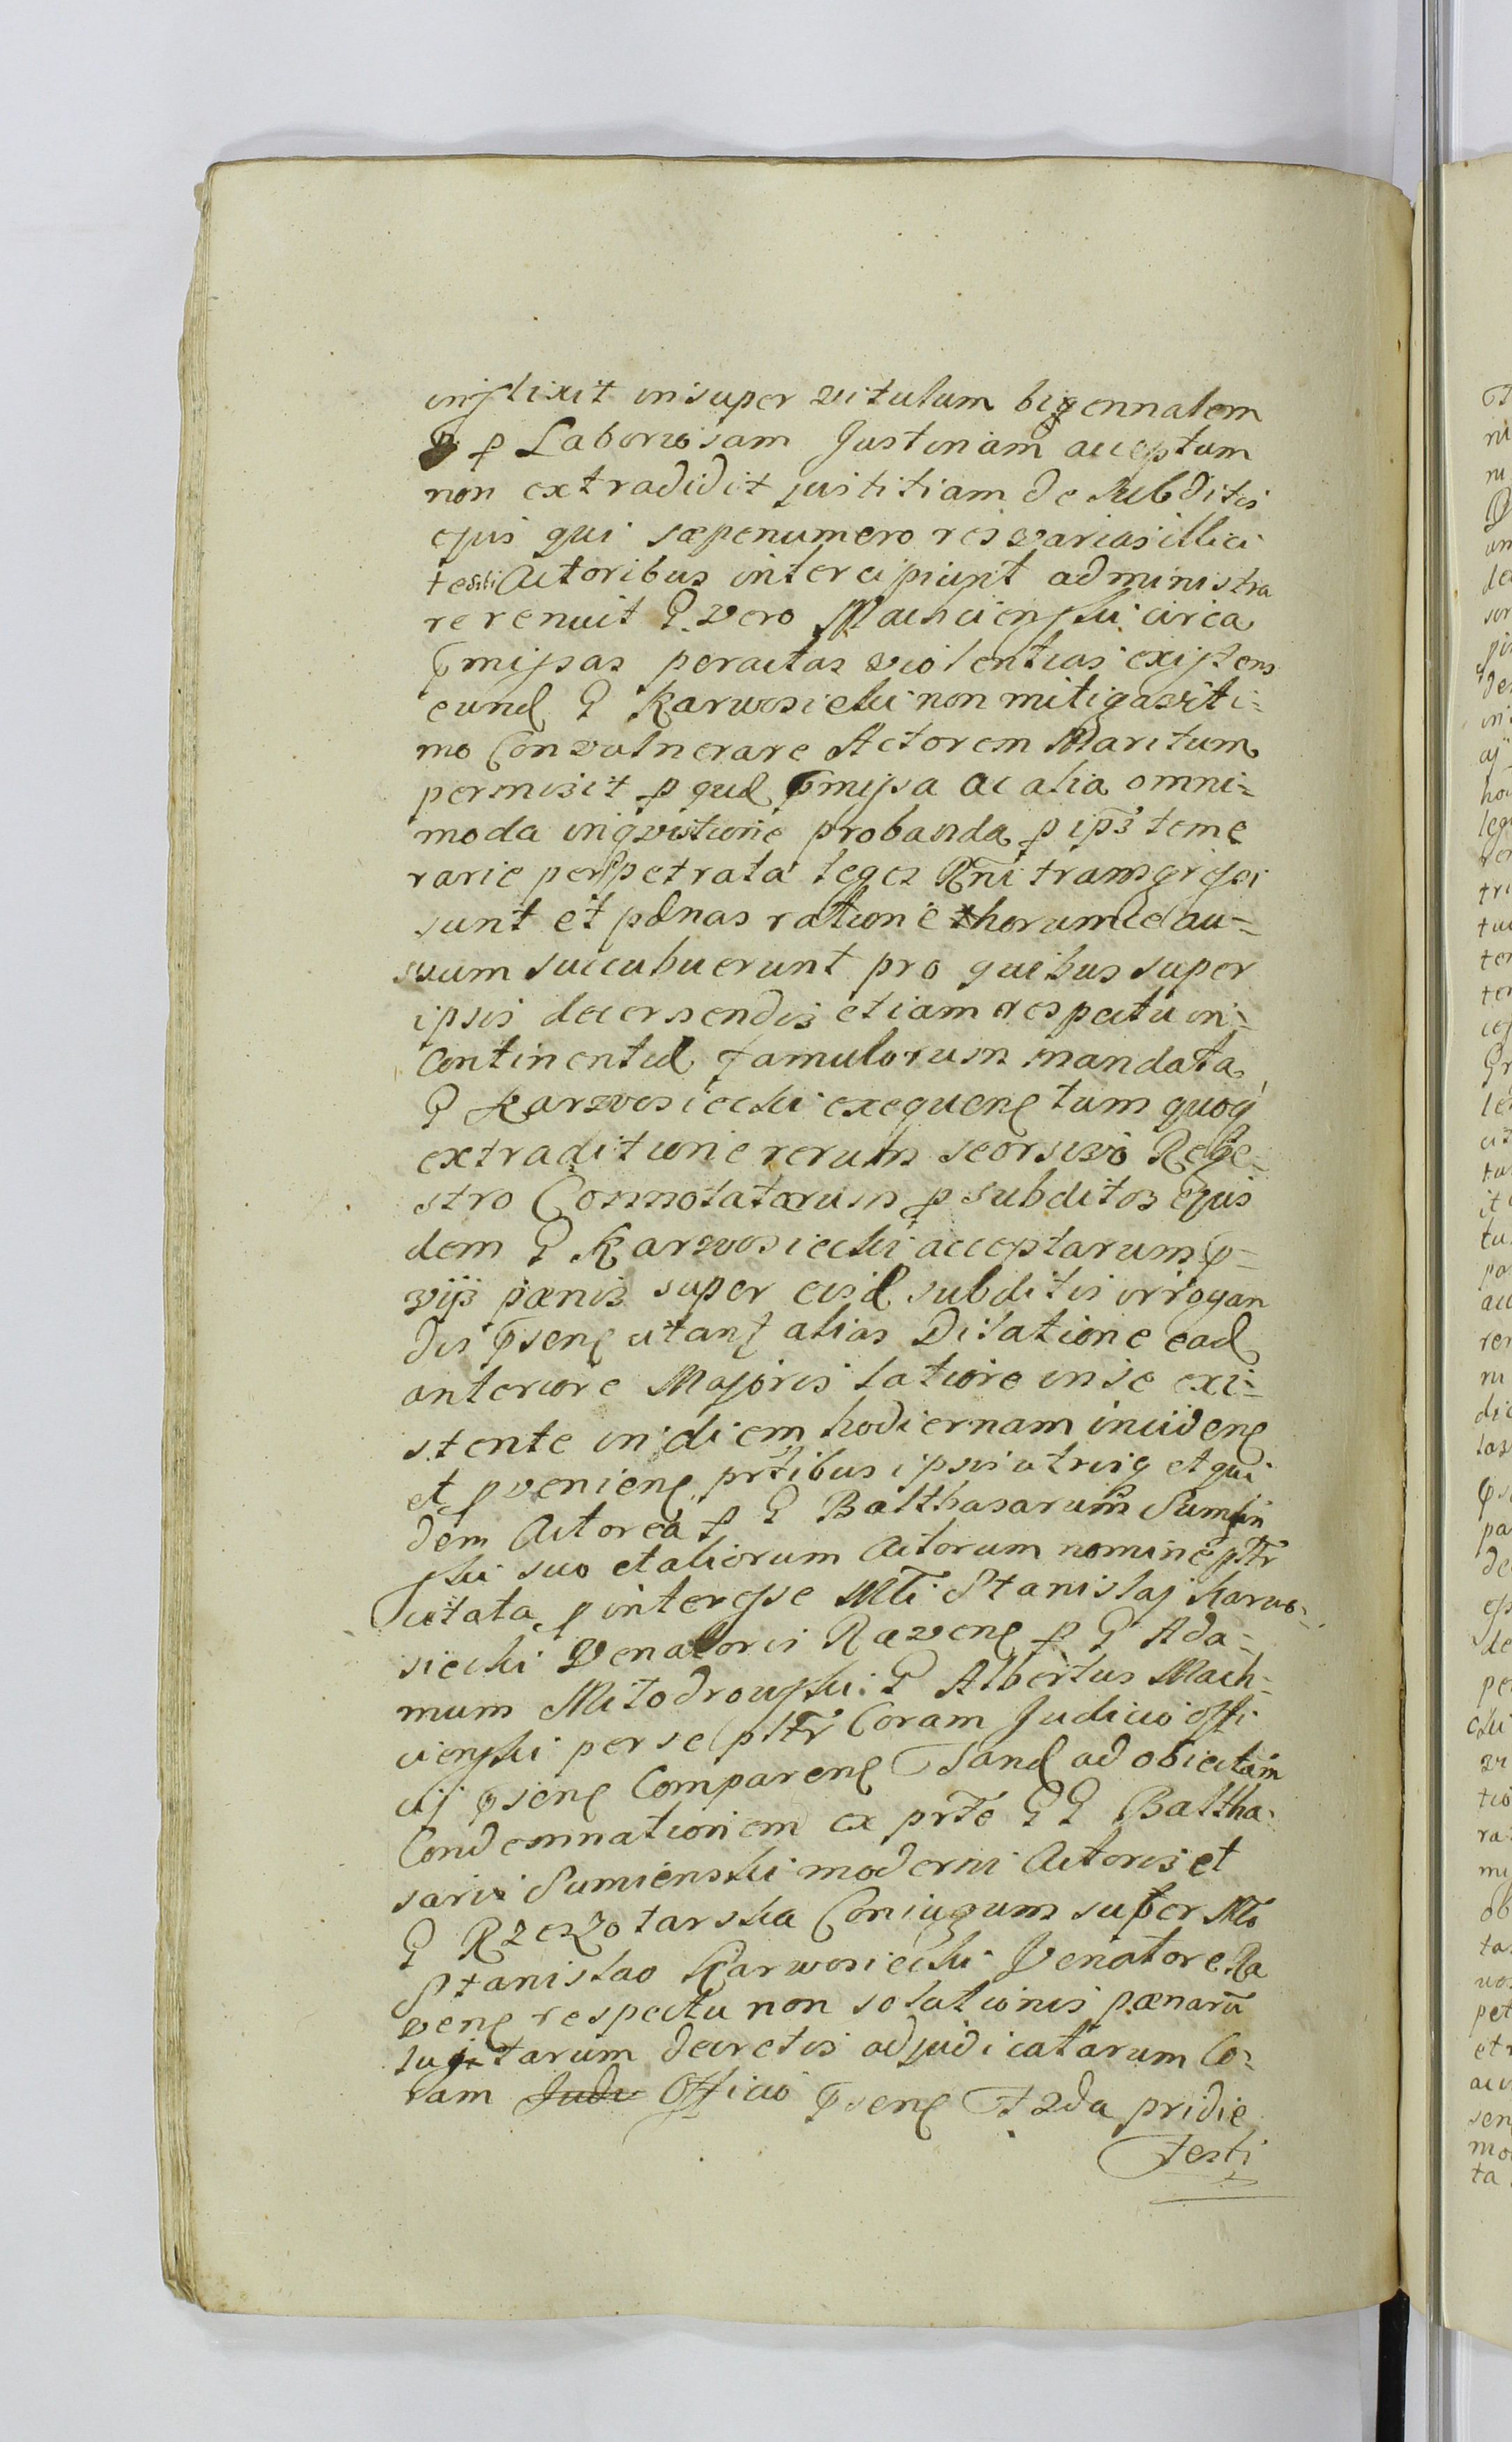 inflixit insuper vitulum bigennalem
p Laboriosam Justinam acceptum
non extradidit justitiam de subditis
ejus qui sæpenumero res varias illici
te Actoribus intercipiunt administra
re renuit G. vero Machcienski circa
pmissas peractas violentias existens
eund G Karwosiecki non mitigavit i=
mo Convulnerare Actorem Maritum
permisit p qud pmissa ac alia omni=
moda inqvisitione probanda p ips teme
rarie perpetrata leges Rni transgressi
sunt et pænas ratione horumce au=
suum succubuerunt pro quibus super
ipsis decernendis etiam respectu in=
continentiæ famulorum mandata
G Karwosiecki exequen tum quoq
extraditione rerum seorsivo Rege=
stro Connotatarum p subditos ejus
dem G Karwosiecki acceptarum p=
vijs pænis super eisd subditis irrogan
dis psen citant alias Dilatione ead
anteriore Majoris latiore in se exi=
stente in diem hodiernam inciden
et pvenien prtibus ipsis utrisq et qui
dem Actorea p G Balthasarum Sumin
ski suo et aliorum Actorum nomine pltr
Citata p interesse Mci Stanislaj Karwo=
siecki Venatoris Raven p G Ada=
mum Mitodrowski. G Albertus Mach=
cienski per se pltr Coram Judicio offi
cij psen Comparen Tand ad obiectam
Condemnationem ex prte GG Baltha=
saris Sumienski moderni Actoris et
G Rzeszotarska Coniugum super Mco
Stanislao Karwosiecki Venatore Ra
ven respectu non solutionis pænarū
luitarum decretis adjudicatarum Co=
ram Judi Officio psen F 2da pridie
Festi